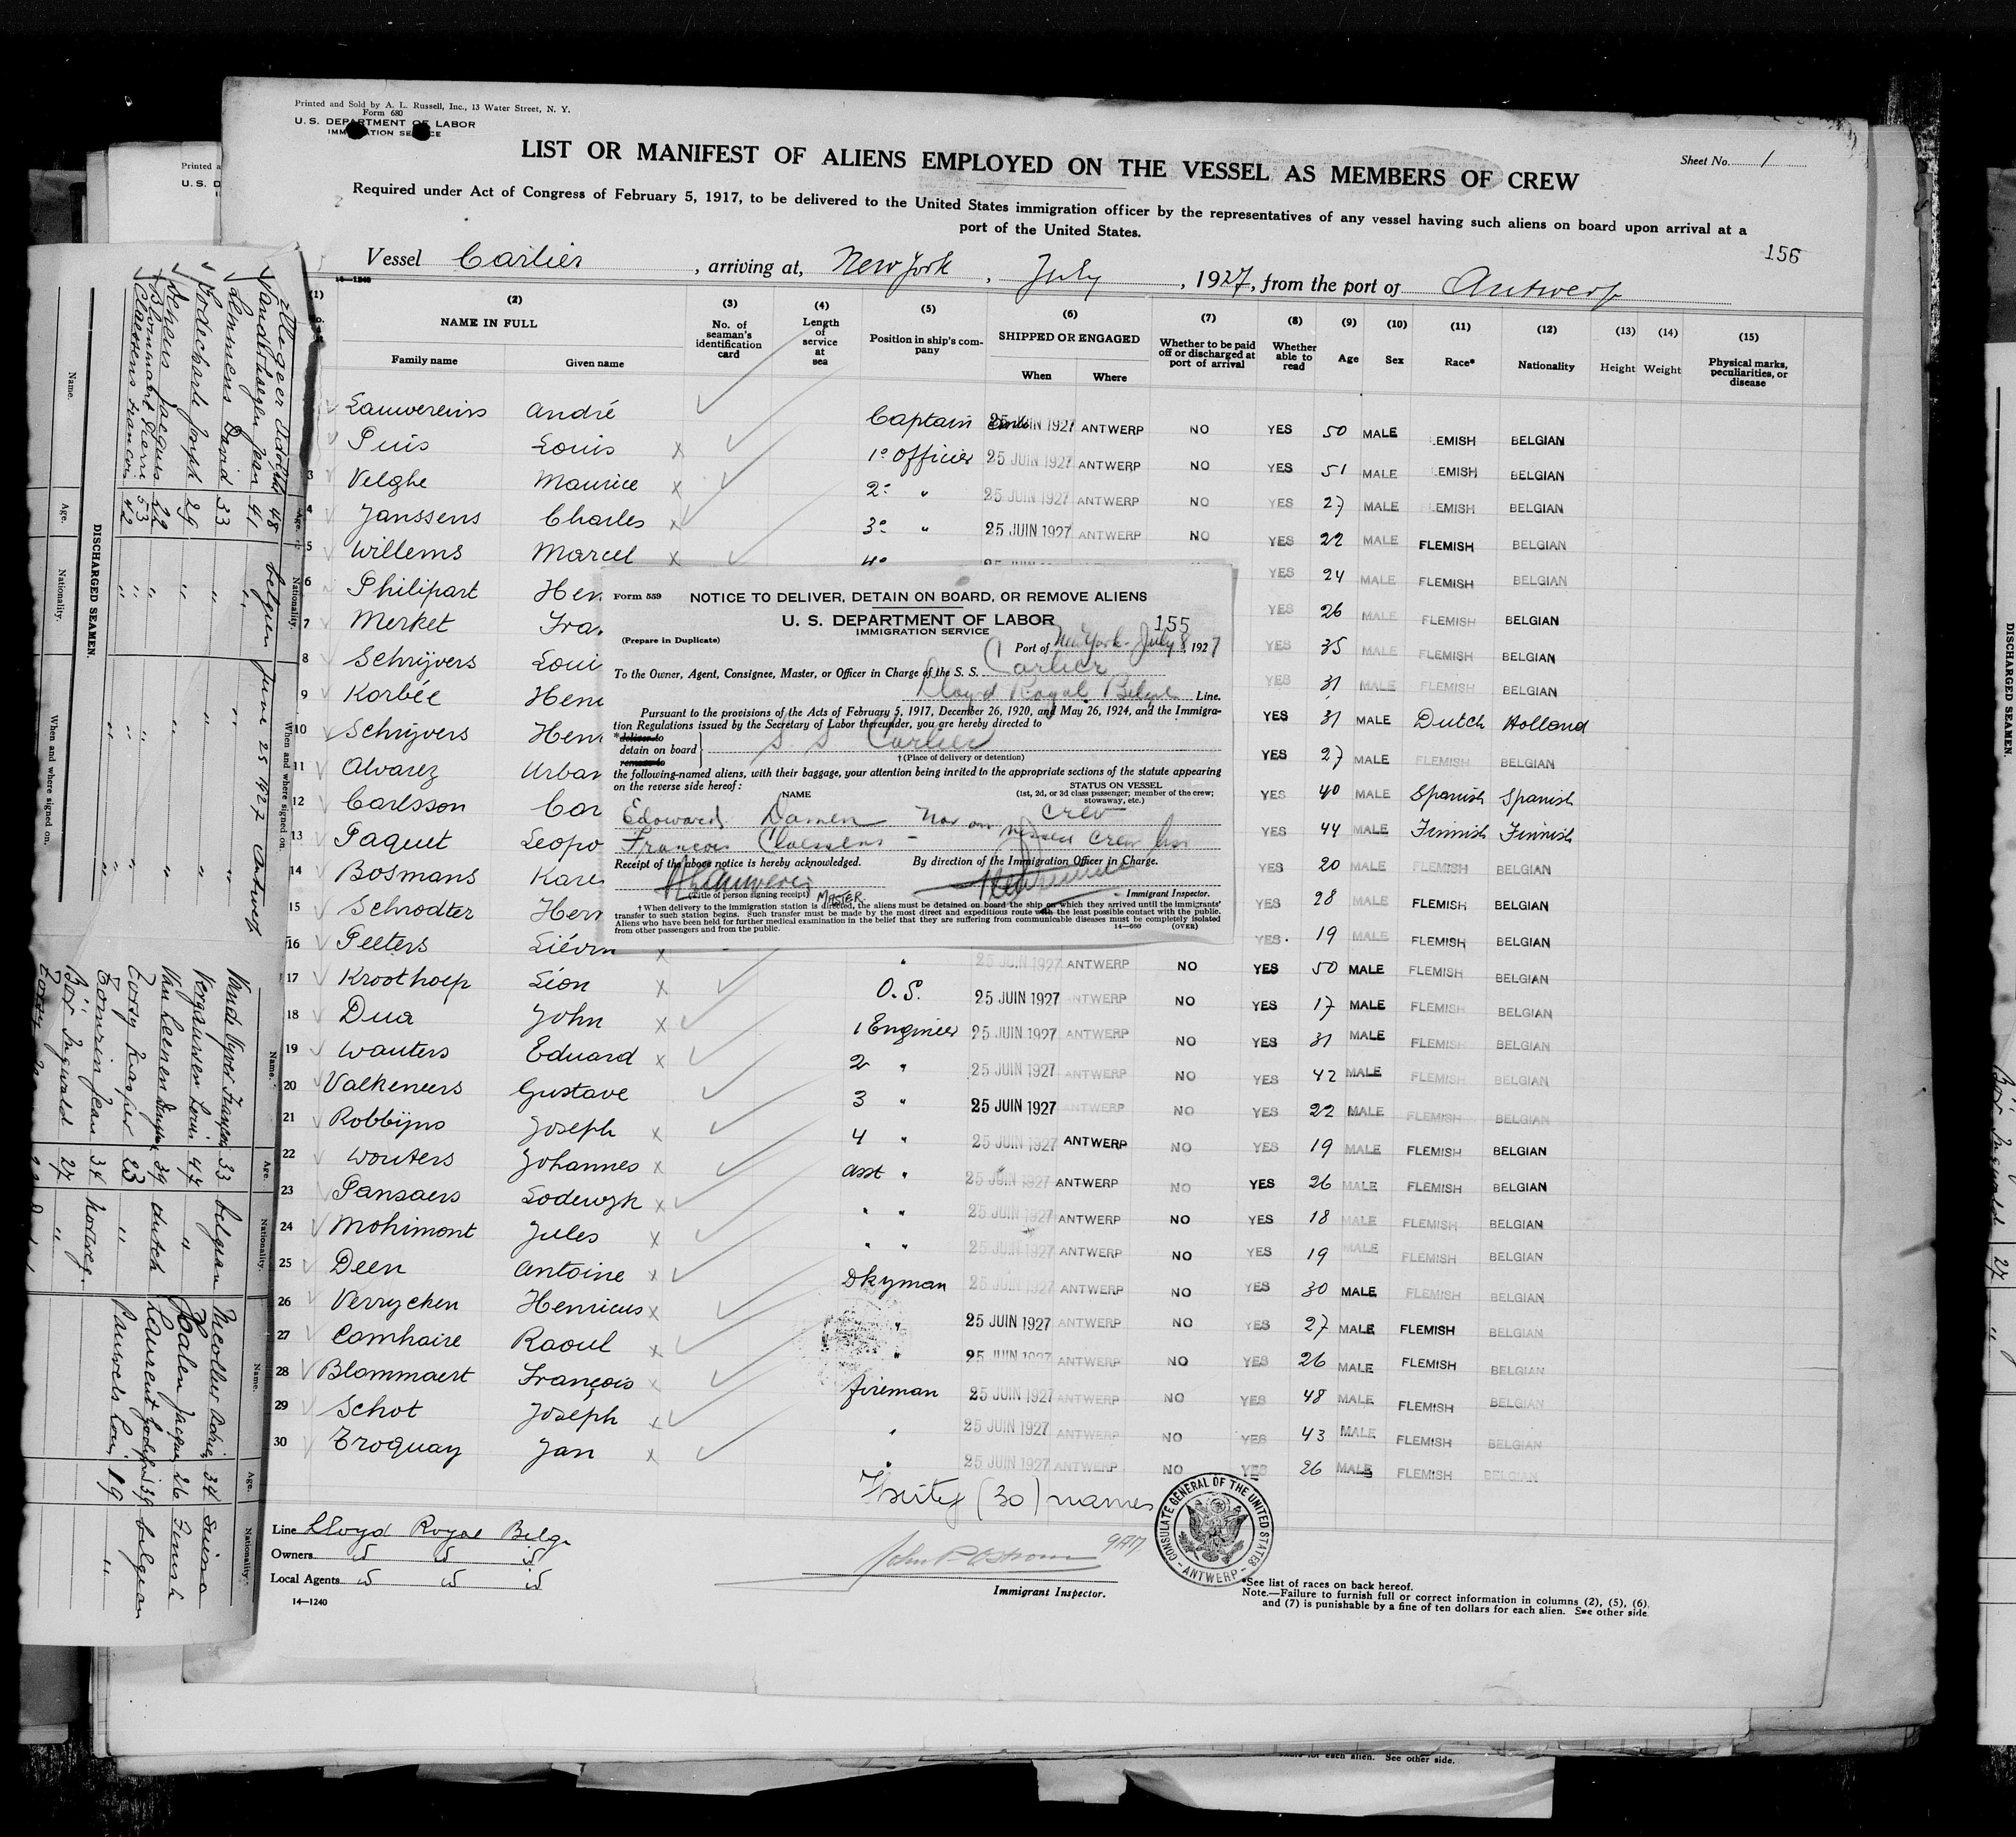 Printed and Sold by A. L. Russell, Inc., 13 Water Street, N. Y.
Form 680
U. S. DEPARTMENT OF LABOR
IMMIGRATION SERVICE
LIST OR MANIFEST OF ALIENS EMPLOYED ON THE VESSEL AS MEMBERS OF CREW
Sheet No. 1
Required under Act of Congress of February 5, 1917, to be delivered to the United States immigration officer by the representatives of any vessel having such aliens on board upon arrival at a
port of the United States.
156
Vessel Carlier, arriving at, New York, July, 1927, from the port of Antwerp
14—1240
(1) (2) (3) (4) (5) (6) (7) (8) (9) (10) (11) (12) (13) (14) (15)
NAME IN FULL
Family name Given name
No. of seaman's identification card
Length of service at sea
Position in ship's company
SHIPPED OR ENGAGED
When Where
Whether to be paid off or discharged at port of arrival
Whether able to read
Age
Sex
Race*
Nationality
Height
Weight
Physical marks, peculiarities, or disease
Lauwereins André Captain 25 JUIN 1927 ANTWERP NO YES 50 MALE LEMISH BELGIAN
Puis Louis x 1e Officier 25 JUIN 1927 ANTWERP NO YES 51 MALE LEMISH BELGIAN
3 Velghe Maurice x 2e " 25 JUIN 1927 ANTWERP NO YES 27 MALE FLEMISH BELGIAN
4 Janssens Charles x 3e " 25 JUIN 1927 ANTWERP NO YES 22 MALE FLEMISH BELGIAN
5 Willems Marcel x 4e YES 24 MALE FLEMISH BELGIAN
6 Philipart Hen YES 26 MALE FLEMISH BELGIAN
7 Merket Fra YES 35 MALE FLEMISH BELGIAN
8 Schrijvers Loui YES 31 MALE FLEMISH BELGIAN
9 Korbée Hen YES 31 MALE Dutch Holland
10 Schrijvers Hen YES 27 MALE FLEMISH BELGIAN
11 Alvarez Urban YES 40 MALE Spanish Spanish
12 Carlsson Car YES 44 MALE Finnish Finnish
13 Paquet Leopo YES 20 MALE FLEMISH BELGIAN
14 Bosmans Kare YES 28 MALE FLEMISH BELGIAN
15 Schrodter Her YES 19 MALE FLEMISH BELGIAN
16 Peeters Liévin x " 25 JUIN 1927 ANTWERP NO YES 50 MALE FLEMISH BELGIAN
17 Kroothoep Léon x O.S. 25 JUIN 1927 ANTWERP NO YES 17 MALE FLEMISH BELGIAN
18 Dua John x 1 Engineer 25 JUIN 1927 ANTWERP NO YES 31 MALE FLEMISH BELGIAN
19 Wauters Eduard x 2 " 25 JUIN 1927 ANTWERP NO YES 42 MALE FLEMISH BELGIAN
20 Valkeneers Gustave 3 " 25 JUIN 1927 ANTWERP NO YES 22 MALE FLEMISH BELGIAN
21 Robbijns Joseph x 4 " 25 JUIN 1927 ANTWERP NO YES 19 MALE FLEMISH BELGIAN
22 Wouters Johannes x asst " 25 JUIN 1927 ANTWERP NO YES 26 MALE FLEMISH BELGIAN
23 Pansaers Lodewyk x " " 25 JUIN 1927 ANTWERP NO YES 18 MALE FLEMISH BELGIAN
24 Mohimont Jules x " " 25 JUIN 1927 ANTWERP NO YES 19 MALE FLEMISH BELGIAN
25 Deen Antoine x Dkyman 25 JUIN 1927 ANTWERP NO YES 30 MALE FLEMISH BELGIAN
26 Verrycken Henricus x " 25 JUIN 1927 ANTWERP NO YES 27 MALE FLEMISH BELGIAN
27 Comhaire Raoul x " 25 JUIN 1927 ANTWERP NO YES 26 MALE FLEMISH BELGIAN
28 Blommaert François x fireman 25 JUIN 1927 ANTWERP NO YES 48 MALE FLEMISH BELGIAN
29 Schot Joseph x " 25 JUIN 1927 ANTWERP NO YES 43 MALE FLEMISH BELGIAN
30 Troquay Jan x " 25 JUIN 1927 ANTWERP NO YES 26 MALE FLEMISH BELGIAN
Thirty (30) names
Line Lloyd Royal Belge
Owners
Local Agents
14—1240
Immigrant Inspector.
CONSULATE GENERAL OF THE UNITED STATES - ANTWERP -
*See list of races on back hereof.
Note.—Failure to furnish full or correct information in columns (2), (5), (6),
and (7) is punishable by a fine of ten dollars for each alien. See other side.
Form 559
NOTICE TO DELIVER, DETAIN ON BOARD, OR REMOVE ALIENS
U. S. DEPARTMENT OF LABOR
155
IMMIGRATION SERVICE
(Prepare in Duplicate)
Port of New York - July 8, 1927
To the Owner, Agent, Consignee, Master, or Officer in Charge of the S. S. Carlier
Lloyd Royal Belge Line.
Pursuant to the provisions of the Acts of February 5, 1917, December 26, 1920, and May 26, 1924, and the Immigra-
tion Regulations issued by the Secretary of Labor thereunder, you are hereby directed to
*deliver to
detain on board
remove to
S S Carlier
†(Place of delivery or detention)
the following-named aliens, with their baggage, your attention being invited to the appropriate sections of the statute appearing
on the reverse side hereof:
NAME
STATUS ON VESSEL
(1st, 2d, or 3d class passenger; member of the crew;
stowaway, etc.)
Edouward Damen Not on vessel crew
Francois Claessens - crew list
Receipt of the above notice is hereby acknowledged.
By direction of the Immigration Officer in Charge.
(Title of person signing receipt) MASTER.
Immigrant Inspector.
†When delivery to the immigration station is directed, the aliens must be detained on board the ship on which they arrived until the immigrants'
transfer to such station begins. Such transfer must be made by the most direct and expeditious route with the least possible contact with the public.
Aliens who have been held for further medical examination in the belief that they are suffering from communicable diseases must be completely isolated
from other passengers and from the public.
14—660 (OVER)
Printed a
U. S. D
Name. Age. Nationality. When and where signed on.
Adolphe 48 belgian June 25 1927 Antwerp
Vandorhaegen Jean 41 "
Lemmens David 33 "
Rodecharle Joseph 29 "
Deneus Jacques 22 "
Blommaert Pierre 53 "
Claessens Francois 42 "
DISCHARGED SEAMEN.
Name. Age. Nationality. When and where signed on.
Name. Age. Nationality.
Vande Vyver François 33 belgian
Vergauwen Louis 47 "
Van Leenen 39 dutch
Torsy Kasper 23 "
Tonnrin Jean 34 Norweg.
Boÿ Ingwald 27 "
Name. Age. Nationality.
34 Suisse
Halen Jacques 26 Finnish
Laurent 39 belgian
Pauwels Louis 19 "
DISCHARGED SEAMEN.
Boÿ Ingwald 27 "
for each alien. See other side.